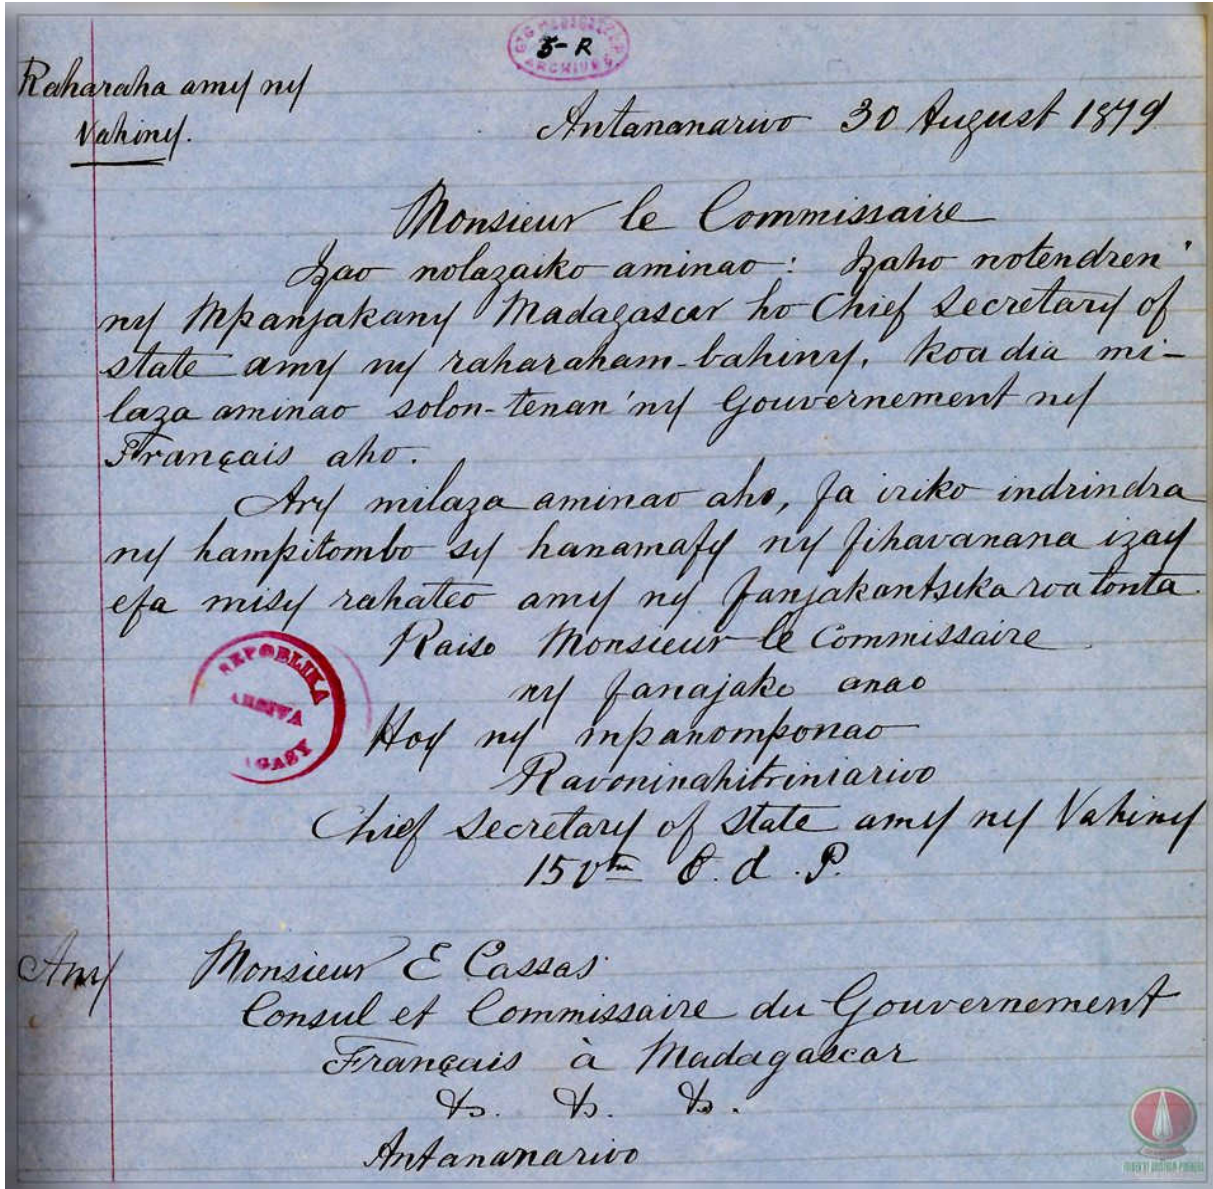 5-R
ARCHIVES
Raharaha amy ny
Vahiny.
Antananarivo 30 August 1879
Monsieur le Commissaire
Izao nolazaiko aminao: Izaho notendren'
ny Mpanjakany Madagascar ho Chief Secretary of
state amy ny raharaham-bahiny, koa dia mi-
laza aminao solon-tenan'ny Gouvernement ny
Français aho.
Ary milaza aminao aho, fa iriko indrindra
ny hampitombo sy hanamafy ny fihavanana izay
efa misy rahateo amy ny fanjakantsika roa tonta
Raiso Monsieur le Commissaire
ny fanajako anao
Hoy ny mpanomponao
Ravoninahitriniarivo
Chief Secretary of State amy ny Vahiny
15 vtra O. d. P.
REPOBLIKA
ARSIVA
GASY
Amy Monsieur E Cassas
Consul et Commissaire du Gouvernement
Français à Madagascar
&. &. &.
Antananarivo